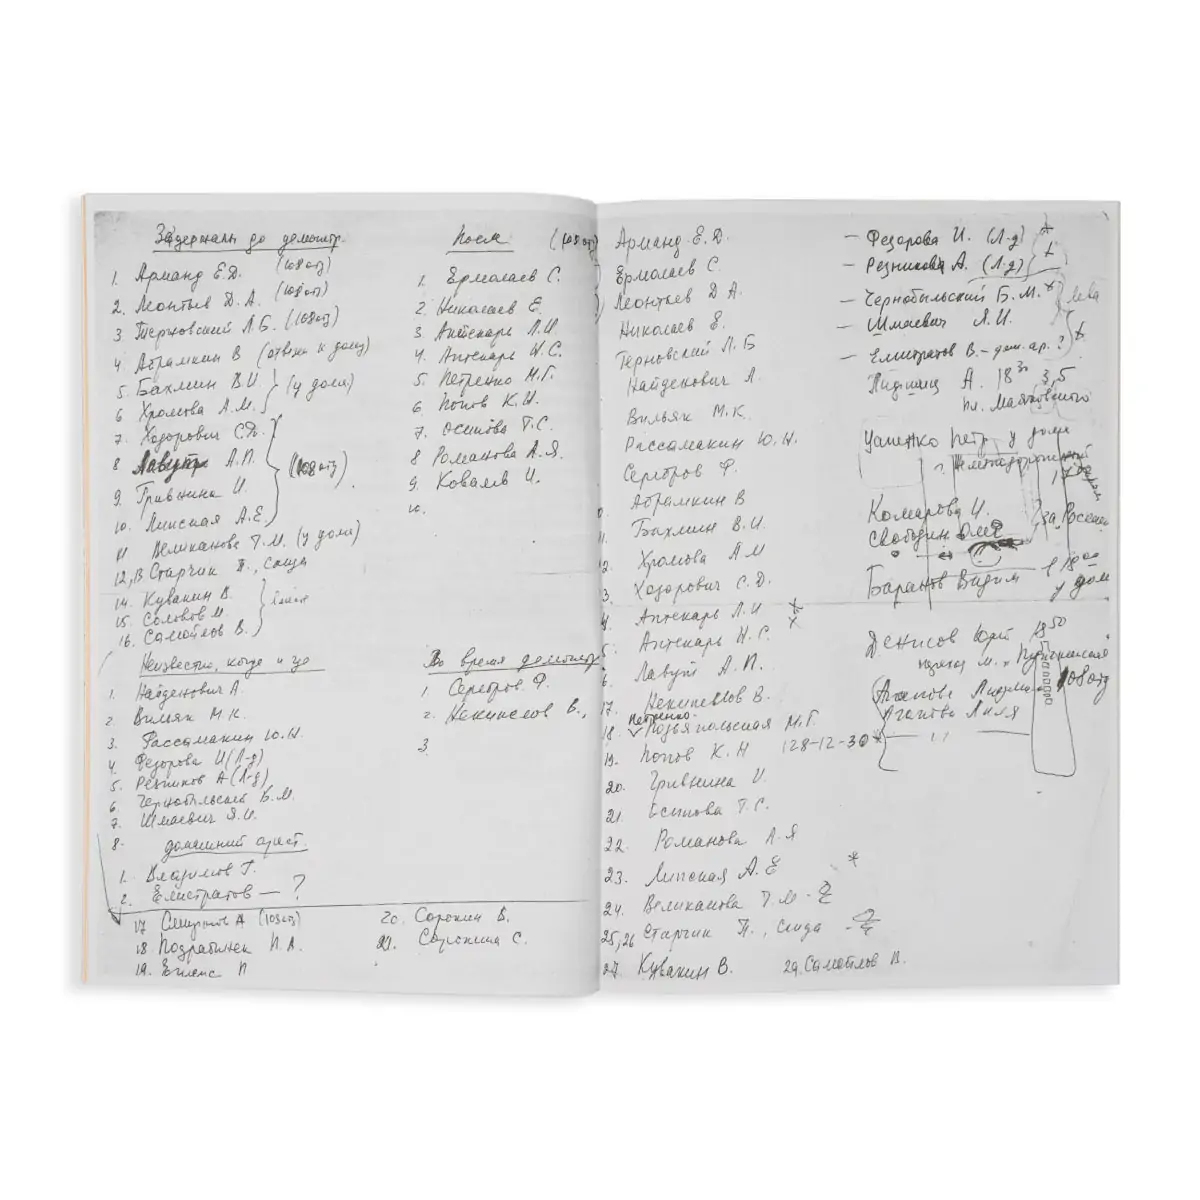 Задержаны до демонстр.
1. Арманд Е.Д. (108 отд)
2. Леонтьев Д.А. (108 отд)
3 Терновский Л.Б. (108 отд)
4 Абрамкин В (отвезли к дому)
5. Бахмин В.И. (у дома)
6 Хромова А.М.
7. Ходорович С.Д.
8 Лавут А.П. (108 отд)
9. Гривнина И.
10. Липская А.Е.
11 Великанова Т.М. (у дома)
12, 13 Старчик П., Саида
14. Кувакин В.
15. Соловов М.
16. Самойлов В.
Неизвестно, когда и где
1. Найденович А.
2. Вильяк М.К.
3. Рассамакин Ю.Н.
4. Федорова И (Л-д)
5. Резников А (Л-д)
6 Чернобыльский Б.М.
7. Шмаевич Я.И.
8.
домашний арест.
1. Владимов Г.
2. Елистратов — ?
17 Смирнов А (108 отд)
18 Подрабинек П.А.
19. Егидес П
После (108 отд)
1. Ермолаев С.
2. Николаев Е.
3 Аптекарь Л.И.
4. Аптекарь И.С.
5. Петренко М.Г.
6 Попов К.И.
7. Осипова Т.С.
8 Романова А.Я.
9. Ковалев И.
10.
Во время демонстр
1 Серебров Ф.
2. Некипелов В.,
3.
20. Сорокин В.
21. Сорокина С.
Арманд Е.Д.
Ермолаев С.
Леонтьев Д А.
Николаев Е.
Терновский Л.Б
Найденович А.
Вильяк М.К.
Рассамакин Ю.Н.
Серебров Ф.
Абрамкин В
Бахмин В.И.
2. Хромова А М
3. Ходорович С.Д.
4. Аптекарь Л.И
5. Аптекарь И.С.
6. Лавут А.П.
17. Некипелов В.
Петренко
18. Подъяпольская М.Г.
19. Попов К.Н 128-12-30*
20. Гривнина И.
21. Осипова Т.С.
22. Романова А.Я
23. Липская А.Е *
24. Великанова Т.М. - 2
25, 26 Старчик П., Саида - 2
27 Кувакин В. 29. Самойлов В.
— Федорова И. (Л-д)
— Резникова А. (Л-д)
— Чернобыльский Б.М.*
— Шмаевич Я.И.
— Елистратов В. – дом. ар. ?
А. 18³⁰ 3,5
пл. Маяковского
Петр у дома
Комарова И.
Свободин Олег
Баранов Вадим в 18⁰⁰
у дома
Денисов Юрий 18⁵⁰
м. Пушкинская
108 отд
Агапова Людмила
Агапова Лиля